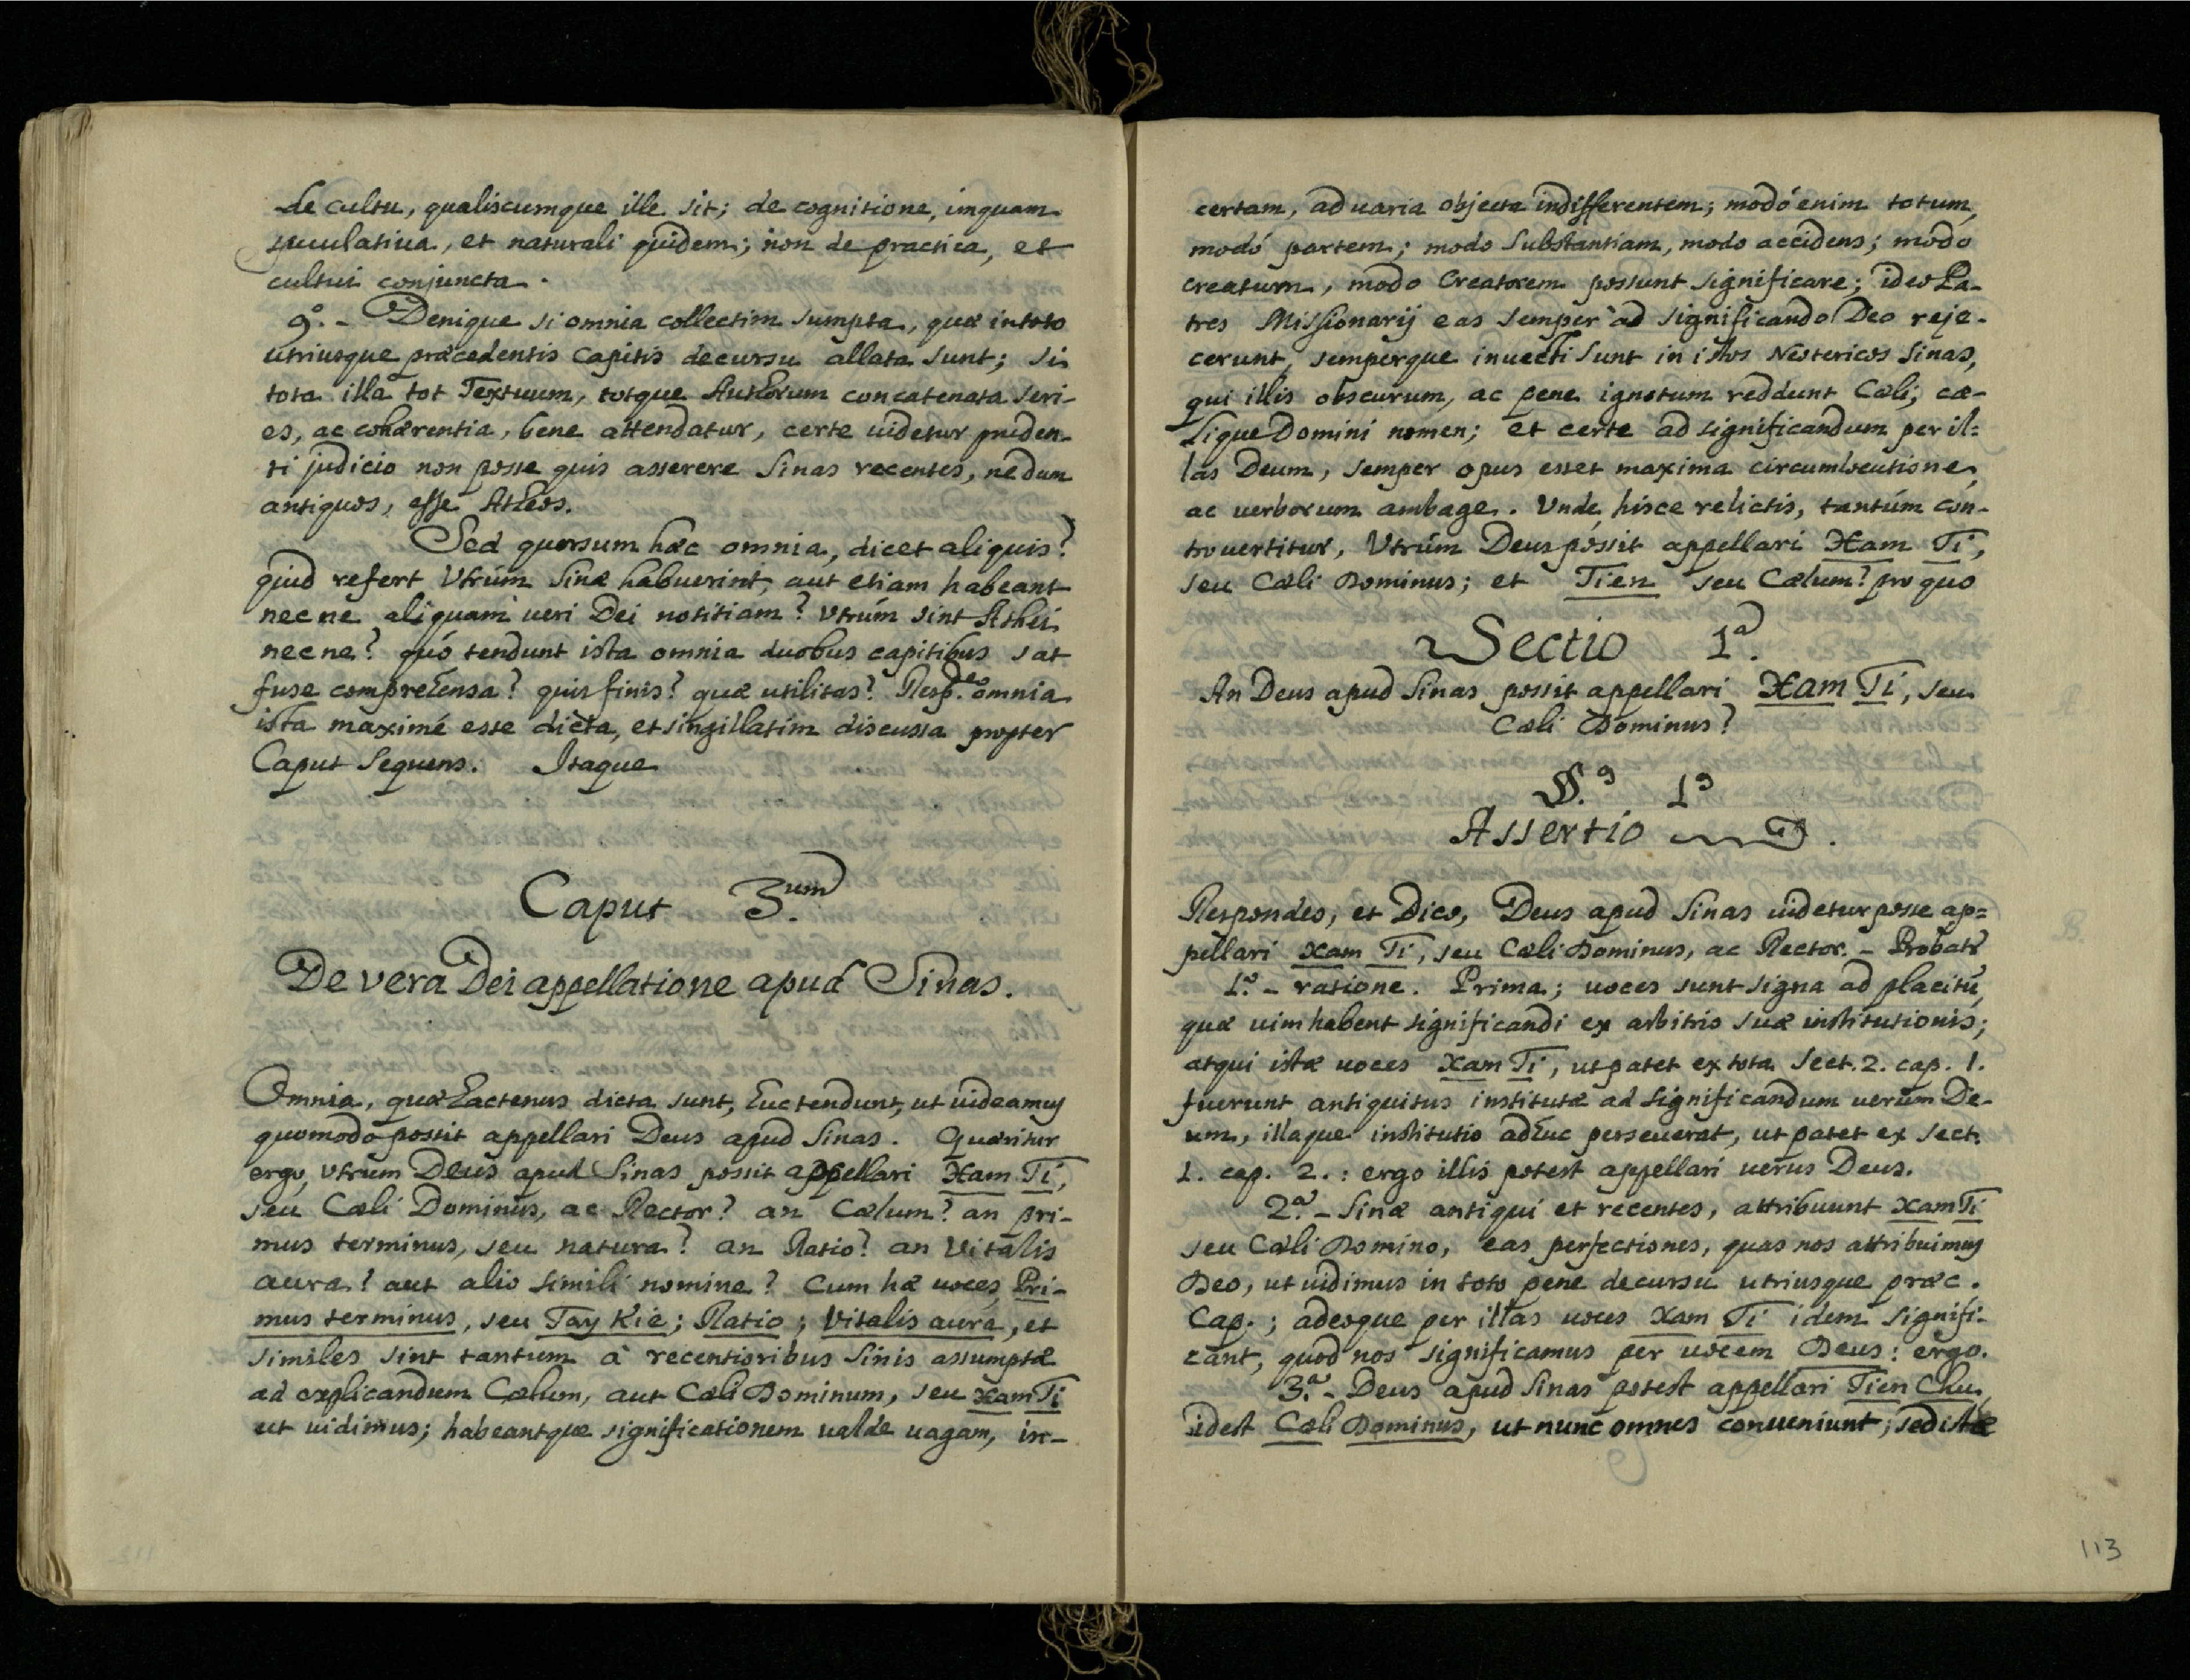 de cultu, qualiscumque ille sit; de cognitione, inquam
speculatiua, et naturali quidem; non de practica, et
cultui conjuncta.
9º. - Denique si omnia collectim sumpta, quæ in toto
utriusque præcedentis Capitis decursu allata sunt; si
tota illa tot Textuum, totque Authorum concatenata seri-
es, ac cohærentia, bene attendatur, certe uidetur pruden-
ti judicio non posse quis asserere Sinas recentes, nedum
antiquos, esse Atheos.
Sed quorsum hæc omnia, dicet aliquis?
quid refert Vtrúm Sinæ habuerint, aut etiam habeant
nec ne aliquam ueri Dei notitiam? vtrúm sint Athei
nec ne? quó tendunt ista omnia duobus capitibus sat
fuse comprehensa? quis finis? quæ utilitas? Respdeo. omnia
ista maximé esse dicta, et singillatim discussa propter
Caput Sequens. Itaque
Caput 3.um
De vera Dei appellatione apud Sinas.
Omnia, quæ hactenus dicta sunt, huc tendunt, ut uideamus
quomodo possit appellari Deus apud Sinas. Quæritur
ergo, vtrum Deus apud Sinas possit appellari Xam Ti,
seu Cæli Dominus, ac Rector? an Cælum? an pri-
mus terminus, seu natura? an Ratio? an Vitalis
aura? aut alio simili nomine? Cum hæ uoces, Pri-
mus terminus, seu Tay Kie; Ratio; Vitalis aura, et
similes sint tantum à recentioribus Sinis assumptæ
ad explicandum Cælum, aut Cæli Dominum, seu Xam Ti
ut uidimus; habeantque significationem ualde uagam, in-
certam, ad uaria objecta indifferentem; modó enim totum,
modó partem; modo Substantiam, modo accidens; modo
creaturam, modo Creatorem possunt significare; ideo Pa-
tres Missionarij eas semper ad significando Deo reje-
cerunt, semperque inuecti sunt in istos Neotericos Sinas,
qui illis obscurum, ac pene ignotum reddunt Cæli, cæ-
lique Domini nomen; et certe ad significandum per il=
las Deum, semper opus esset maxima circumlocutione,
ac uerborum ambage. Vnde hisce relictis, tantúm con-
trouertitur, Vtrúm Deus possit appellari Xam Ti,
seu Cæli Dominus; et Tien seu Cælum? pro quo
Sectio 1.ª
An Deus apud Sinas possit appellari Xam Ti, seu
Cæli Dominus?
§.º 1º
Assertio .
Respondeo, et Dico, Deus apud Sinas uidetur posse ap=
pellari Xam Ti, seu Cæli Dominus, ac Rector. - Probatr
1.º - ratione. Prima; uoces sunt signa ad placitũ,
quæ uim habent significandi ex arbitrio suæ institutionis;
atqui istæ uoces Xam Ti, ut patet ex tota Sect. 2. cap. 1.
fuerunt antiquitus institutæ ad significandum uerum De-
um, illaque institutio adhuc perseuerat, ut patet ex sect.
1. cap. 2.: ergo illis potest appellari uerus Deus.
2.ª - Sinæ antiqui et recentes, attribuunt Xam Ti
seu Cæli Domino, eas perfectiones, quas nos attribuimus
Deo, ut uidimus in toto pene decursu utriusque præc.
Cap.; adeoque per illas uoces Xam Ti idem signifi-
cant, quod nos significamus per uocem Deus: ergo.
3.ª - Deus apud Sinas potest appellari Tien Chu,
idest Cæli Dominus, ut nunc omnes conueniunt; sed istæ
113